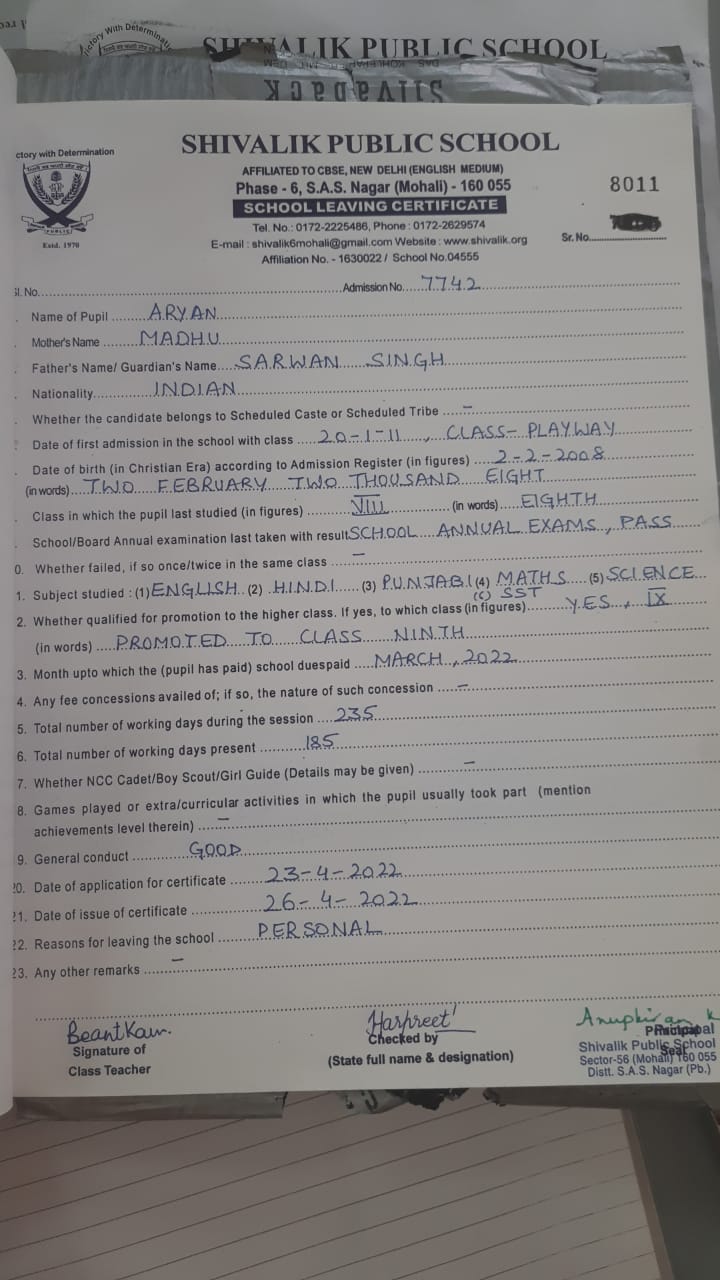 SHIVALIK PUBLIC SCHOOL
Silvapack
ctory With Determination
SHIVALIK PUBLIC SCHOOL
AFFILIATED TO CBSE, NEW DELHI (ENGLISH MEDIUM)
Phase - 6, S.A.S. Nagar (Mohali) - 160 055
8011
SCHOOL LEAVING CERTIFICATE
Tel. No.: 0172-2225486, Phone : 0172-2629574
Estd. 1970
E-mail : shivalik6mohali@gmail.com Website : www.shivalik.org
Sr. No.
Affiliation No. - 1630022 / School No.04555
l. No. Admission No. 7742
Name of Pupil ARYAN
Mother's Name MADHU
Father's Name/ Guardian's Name SARWAN SINGH
Nationality INDIAN
Whether the candidate belongs to Scheduled Caste or Scheduled Tribe –
Date of first admission in the school with class 20-1-11, CLASS- PLAYWAY
Date of birth (in Christian Era) according to Admission Register (in figures) 2-2-2008
(in words) TWO FEBRUARY TWO THOUSAND EIGHT
Class in which the pupil last studied (in figures) VIII (in words) EIGHTH
School/Board Annual examination last taken with result SCHOOL ANNUAL EXAMS, PASS
0. Whether failed, if so once/twice in the same class –
1. Subject studied : (1) ENGLISH (2) HINDI (3) PUNJABI (4) MATHS (5) SCIENCE
(6) SST
2. Whether qualified for promotion to the higher class. If yes, to which class (in figures) YES, IX
(in words) PROMOTED TO CLASS NINTH
3. Month upto which the (pupil has paid) school duespaid MARCH, 2022
4. Any fee concessions availed of; if so, the nature of such concession –
5. Total number of working days during the session 235
6. Total number of working days present 185
7. Whether NCC Cadet/Boy Scout/Girl Guide (Details may be given) –
8. Games played or extra/curricular activities in which the pupil usually took part (mention
achievements level therein) –
9. General conduct GOOD
20. Date of application for certificate 23-4-2022
21. Date of issue of certificate 26-4-2022
22. Reasons for leaving the school PERSONAL
23. Any other remarks –
Beant Kaur.
Signature of
Class Teacher
Harpreet
Checked by
(State full name & designation)
Anupkiran K
Principal
Seal
Shivalik Public School
Sector-56 (Mohali) 160 055
Distt. S.A.S. Nagar (Pb.)